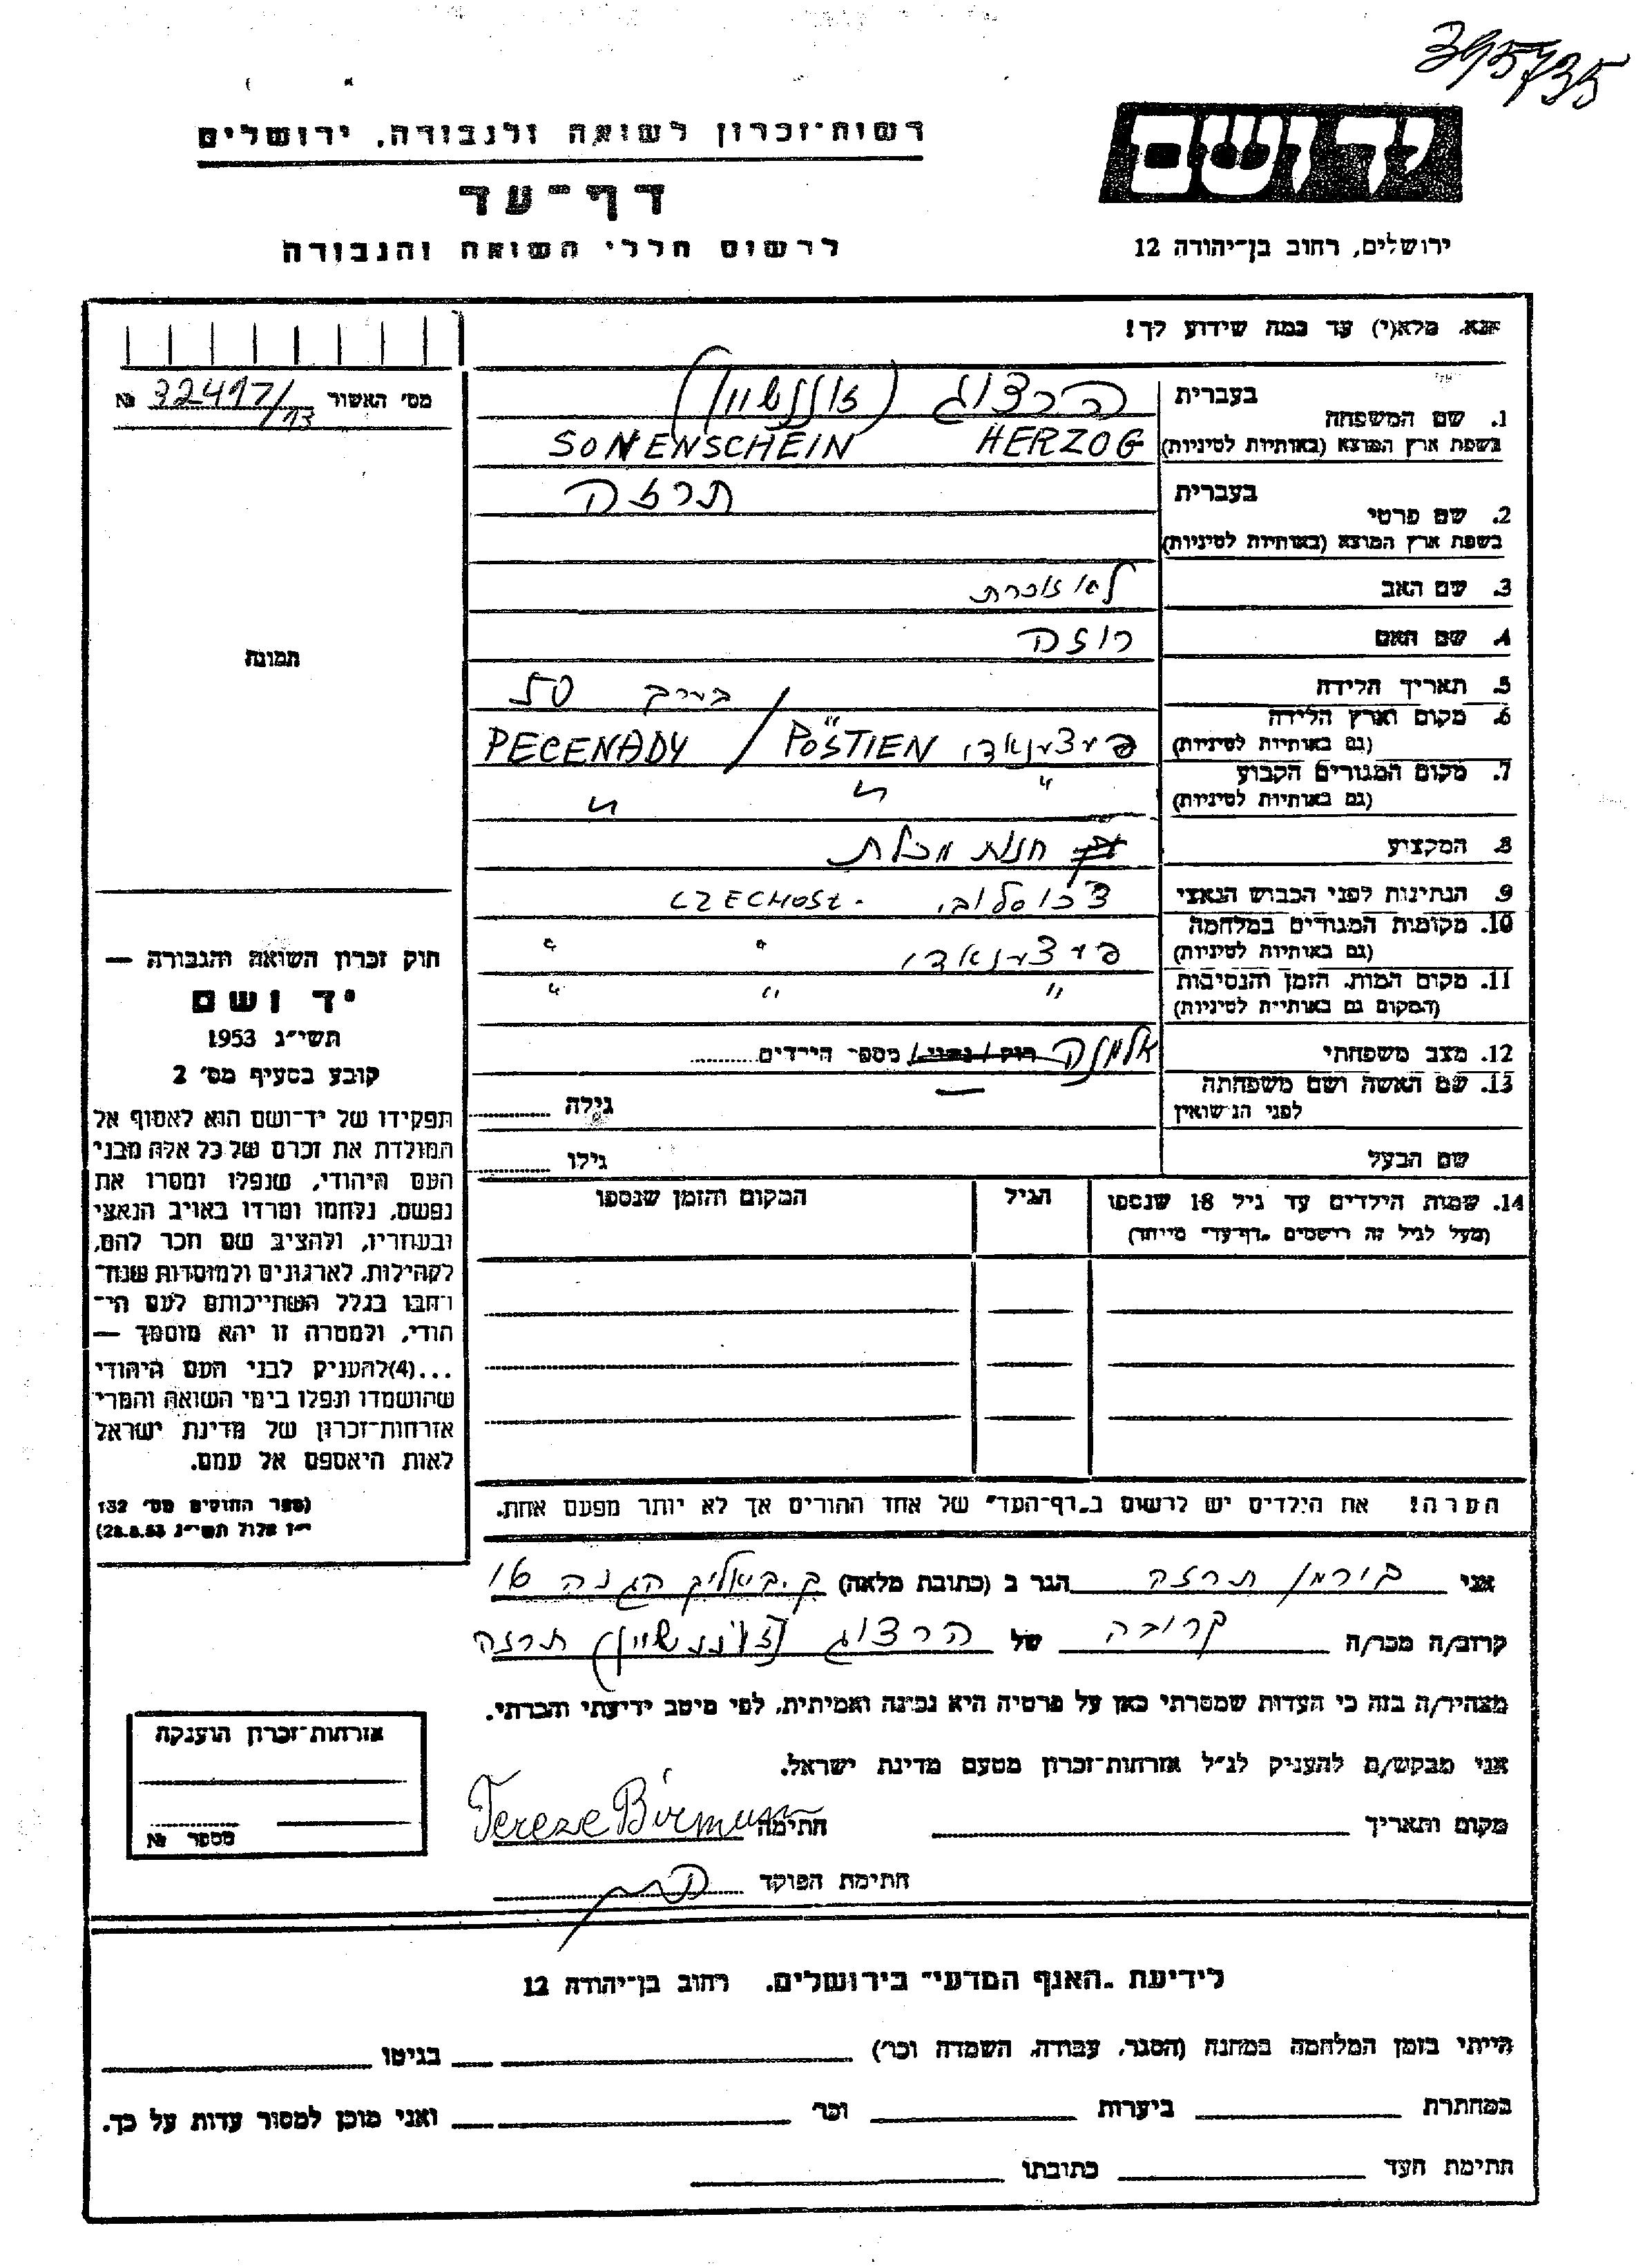 395735
רשות-זכרון לשואה ולגבורה, ירושלים
יד ושם
דף-עד
לרשום חללי השואה והגבורה
ירושלים, רחוב בן-יהודה 12
אנא, מלא(י) עד כמה שידוע לך!
מס' האשור 32417/13 №
1. שם המשפחה
בעברית הרצוג (זוננשיין)
בשפת ארץ המוצא (באותיות לטיניות) HERZOG SONENSCHEIN
2. שם פרטי
בעברית תרזה
בשפת ארץ המוצא (באותיות לטיניות)
3. שם האב לא זוכרת
4. שם האם רוזה
5. תאריך הלידה בערך 50
6. מקום וארץ הלידה
(גם באותיות לטיניות) פצ'נאדי PECENADY / PÖSTIEN
7. מקום המגורים הקבוע
(גם באותיות לטיניות) " " "
8. המקצוע חנות מכלת
9. הנתינות לפני הכבוש הנאצי צ'כוסלוב. CZECHOSL.
10. מקומות המגורים במלחמה
(גם באותיות לטיניות) פצ'נאדי " "
11. מקום המות, הזמן והנסיבות
(המקום גם באותיות לטיניות) " " "
12. מצב משפחתי אלמנה רווק / נשוי / מספר הילדים
13. שם האשה ושם משפחתה
לפני הנישואין — גילה
שם הבעל גילו
14. שמות הילדים עד גיל 18 שנספו
(מעל לגיל זה רושמים "דף-עד" מיוחד)
הגיל
המקום והזמן שנספו
הערה! את הילדים יש לרשום ב"דף-העד" של אחד ההורים אך לא יותר מפעם אחת.
תמונה
חוק זכרון השואה והגבורה —
יד ושם
תשי"ג 1953
קובע בסעיף מס' 2
תפקידו של יד-ושם הוא לאסוף אל
המולדת את זכרם של כל אלה מבני
העם היהודי, שנפלו ומסרו את
נפשם, נלחמו ומרדו באויב הנאצי
ובעוזריו, ולהציב שם וזכר להם,
לקהילות, לארגונים ולמוסדות שנח-
רבו בגלל השתייכותם לעם הי-
הודי, ולמטרה זו יהא מוסמך —
...(4) להעניק לבני העם היהודי
שהושמדו ונפלו בימי השואה והמרי
אזרחות-זכרון של מדינת ישראל
לאות היאספם אל עמם.
(ספר החוקים מס' 132
י"ז אלול תשי"ג 28.8.53)
אני בירמן תרזה הגר ב (כתובת מלאה) ק. ביאליק הגנה 16
קרוב/ה מכר/ה קרובה של הרצוג (זוננשיין) תרזה
מצהיר/ה בזה כי העדות שמסרתי כאן על פרטיה היא נכונה ואמיתית, לפי מיטב ידיעתי והכרתי.
אני מבקש/ת להעניק לנ"ל אזרחות-זכרון מטעם מדינת ישראל.
מקום ותאריך חתימה Tereze Birman
חתימת הפוקד
אזרחות-זכרון הוענקה
מספר №
לידיעת "האגף המדעי" בירושלים, רחוב בן-יהודה 12
הייתי בזמן המלחמה במחנה (הסגר, עבודה, השמדה וכו') בגיטו
במחתרת ביערות וכו' ואני מוכן למסור עדות על כך.
חתימת העד כתובתו